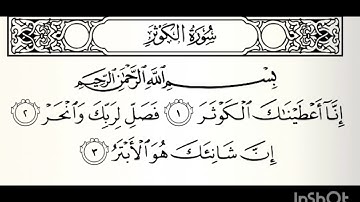 سُورَةُ الكَوْثَرِ
بِسْمِ اللَّهِ الرَّحْمَٰنِ الرَّحِيمِ
إِنَّآ أَعْطَيْنَٰكَ ٱلْكَوْثَرَ ١ فَصَلِّ لِرَبِّكَ وَٱنْحَرْ ٢
إِنَّ شَانِئَكَ هُوَ ٱلْأَبْتَرُ ٣
InShOt